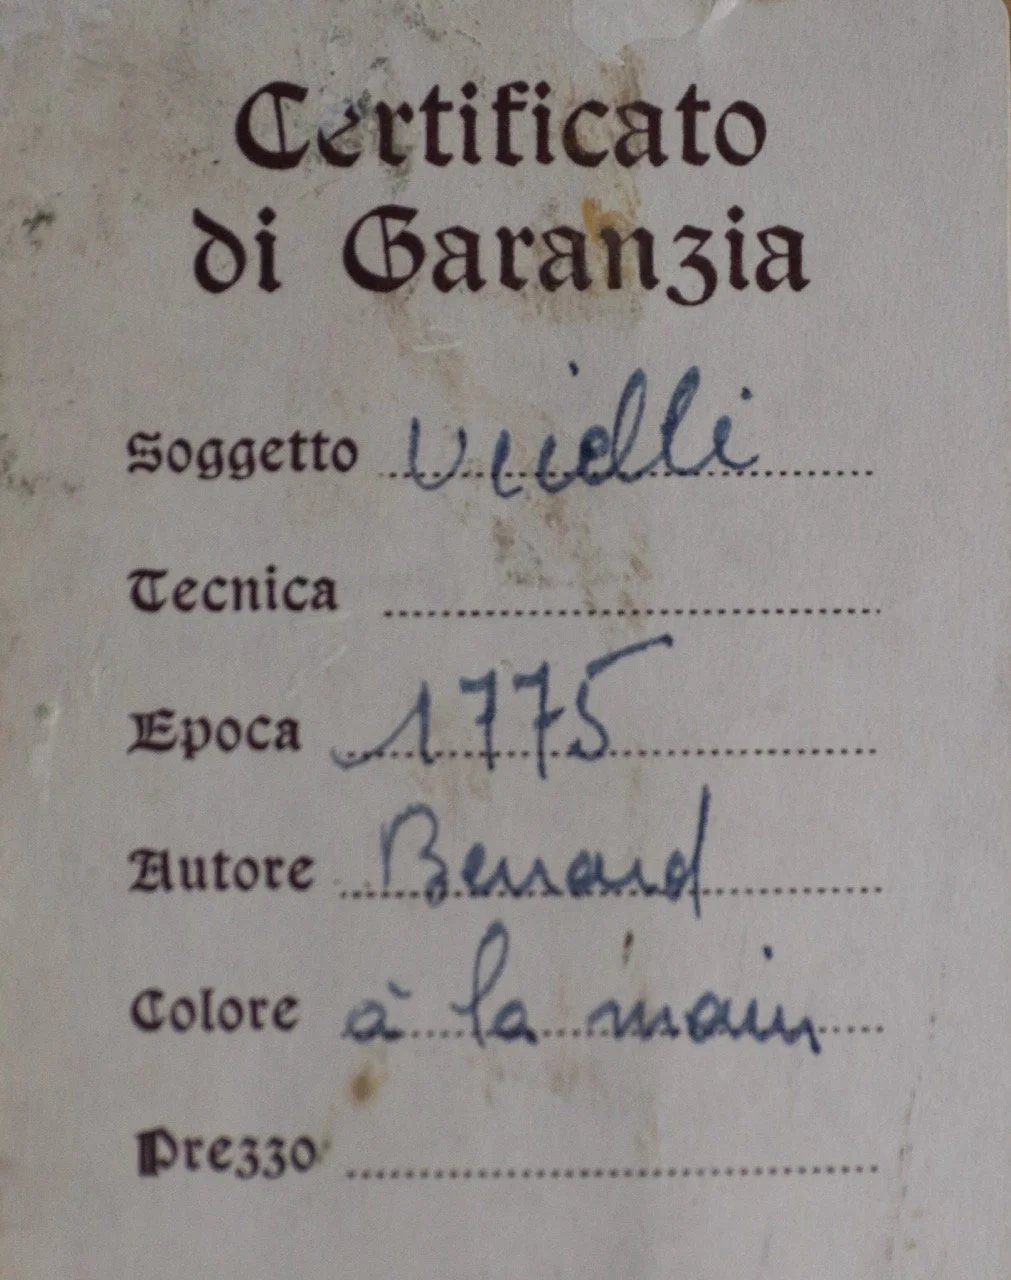 Certificato
di Garanzia
Soggetto
Tecnica
Epoca 1775
Autore Benard
Colore à la main
Prezzo